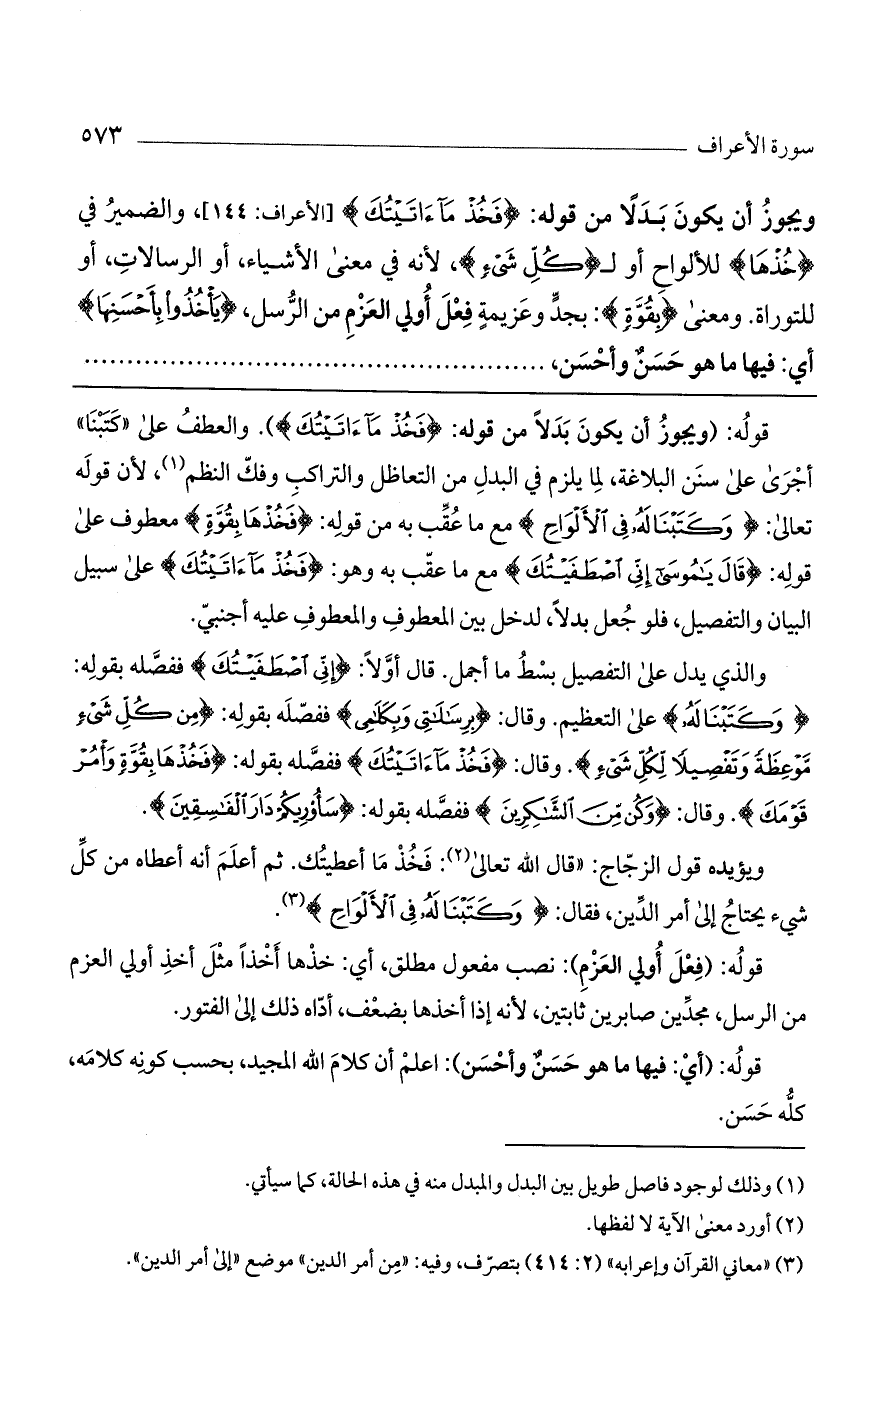 سورة الأعراف ٥٧٣
ويجوزُ أن يكونَ بَدَلًا من قوله: ﴿فَخُذْ مَآ ءَاتَيْتُكَ﴾ [الأعراف: ١٤٤]، والضميرُ في
﴿خُذْهَا﴾ للألواحِ أو لـ﴿كُلِّ شَىْءٍ﴾، لأنه في معنىٰ الأشياء، أو الرسالاتِ، أو
للتوراة. ومعنىٰ ﴿بِقُوَّةٍ﴾: بجدٍّ وعَزيمةٍ فِعْلَ أُولي العَزْمِ من الرُّسل، ﴿يَأْخُذُوا۟ بِأَحْسَنِهَا﴾
أي: فيها ما هو حَسَنٌ وأحْسَن، ......................................................
قولُه: (ويجوزُ أن يكونَ بَدَلاً من قوله: ﴿فَخُذْ مَآ ءَاتَيْتُكَ﴾). والعطفُ علىٰ «كَتَبْنَا»
أجْرَىٰ علىٰ سنَن البلاغة، لِما يلزم في البدلِ من التعاظل والتراكبِ وفكّ النظم(١)، لأن قولَه
تعالىٰ: ﴿وَكَتَبْنَا لَهُۥ فِى ٱلْأَلْوَاحِ﴾ مع ما عُقِّب به من قولِه: ﴿فَخُذْهَا بِقُوَّةٍ﴾ معطوف علىٰ
قولِه: ﴿قَالَ يَـٰمُوسَىٰٓ إِنِّى ٱصْطَفَيْتُكَ﴾ مع ما عقّب به وهو: ﴿فَخُذْ مَآ ءَاتَيْتُكَ﴾ علىٰ سبيل
البيان والتفصيل، فلو جُعل بدلاً، لدخل بين المعطوفِ والمعطوفِ عليه أجنبيّ.
والذي يدل علىٰ التفصيل بسْطُ ما أجمل. قال أوَّلاً: ﴿إِنِّى ٱصْطَفَيْتُكَ﴾ ففصَّله بقولِه:
﴿وَكَتَبْنَا لَهُۥ﴾ علىٰ التعظيم. وقال: ﴿بِرِسَـٰلَـٰتِى وَبِكَلَـٰمِى﴾ ففصّلَه بقولِه: ﴿مِن كُلِّ شَىْءٍ
مَّوْعِظَةً وَتَفْصِيلًا لِّكُلِّ شَىْءٍ﴾. وقال: ﴿فَخُذْ مَآ ءَاتَيْتُكَ﴾ ففصَّله بقوله: ﴿فَخُذْهَا بِقُوَّةٍ وَأْمُرْ
قَوْمَكَ﴾. وقال: ﴿وَكُن مِّنَ ٱلشَّـٰكِرِينَ﴾ ففصَّله بقوله: ﴿سَأُو۟رِيكُمْ دَارَ ٱلْفَـٰسِقِينَ﴾.
ويؤيده قول الزجّاج: «قال الله تعالىٰ(٢): فَخُذْ مَا أعطيتُك. ثم أعلَمَ أنه أعطاه من كلِّ
شيء يحتاجُ إلىٰ أمر الدِّين، فقال: ﴿وَكَتَبْنَا لَهُۥ فِى ٱلْأَلْوَاحِ﴾(٣).
قولُه: (فِعْلَ أُولي العَزْمِ): نصب مفعول مطلق، أي: خذْها أَخْذاً مثْلَ أخذِ أولي العزم
من الرسل، مجدِّين صابرين ثابتين، لأنه إذا أخذها بضعْف، أدّاه ذلك إلىٰ الفتور.
قولُه: (أيْ: فيها ما هو حَسَنٌ وأحْسَن): اعلمْ أن كلامَ الله المجيد، بحسب كونِه كلامَه،
كلُّه حَسَن.
(١) وذلك لوجود فاصل طويل بين البدل والمبدل منه في هذه الحالة، كما سيأتي.
(٢) أورد معنىٰ الآية لا لفظها.
(٣) «معاني القرآن وإعرابه» (٢: ٤١٤) بتصرّف، وفيه: «مِن أمر الدين» موضع «إلىٰ أمر الدين».